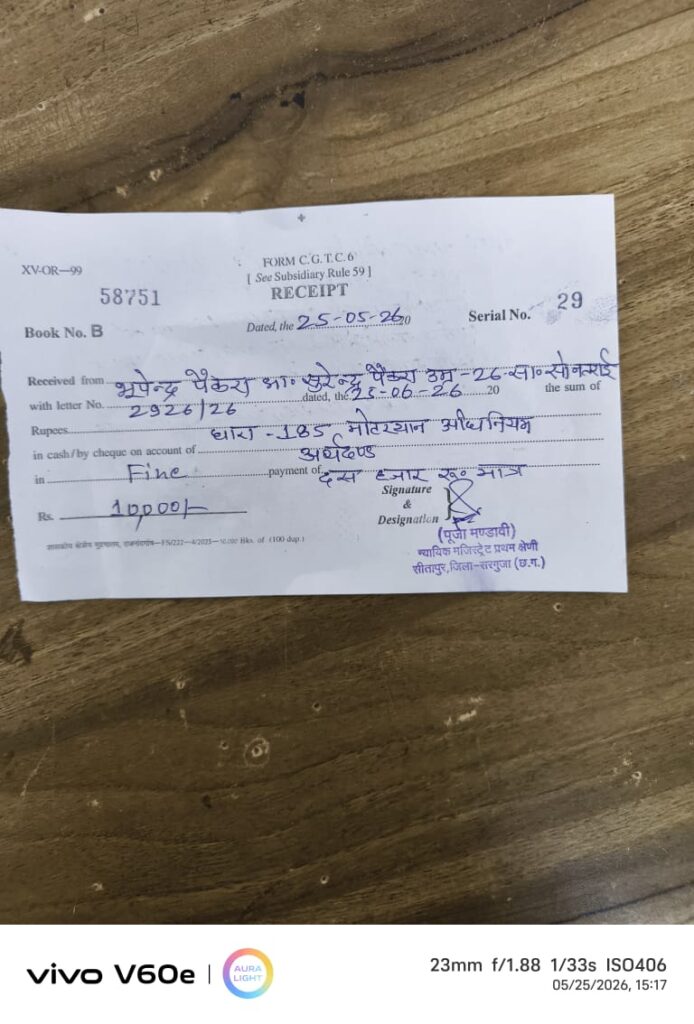 XV-OR—99
FORM C.G.T.C.6
[ See Subsidiary Rule 59 ]
58751
RECEIPT
Book No. B
Dated, the 25-05-26 20
Serial No. 29
Received from भूपेन्द्र पैंकरा आ॰ सुरेन्द्र पैंकरा उम्र-26-सा॰
with letter No. 2926/26 dated, the 20 the sum of
Rupees धारा-185 मोटरयान अधिनियम
in cash/by cheque on account of अर्थदण्ड
in Fine payment of दस हजार रू॰ मात्र
Signature
&
Designation
Rs. 10,000/-
(पूजा मण्डावी)
न्यायिक मजिस्ट्रेट प्रथम श्रेणी
सीतापुर, जिला-सरगुजा (छ.ग.)
शासकीय क्षेत्रीय मुद्रणालय, राजनांदगांव
vivo V60e | AURA LIGHT
23mm f/1.88 1/33s ISO406
05/25/2026, 15:17